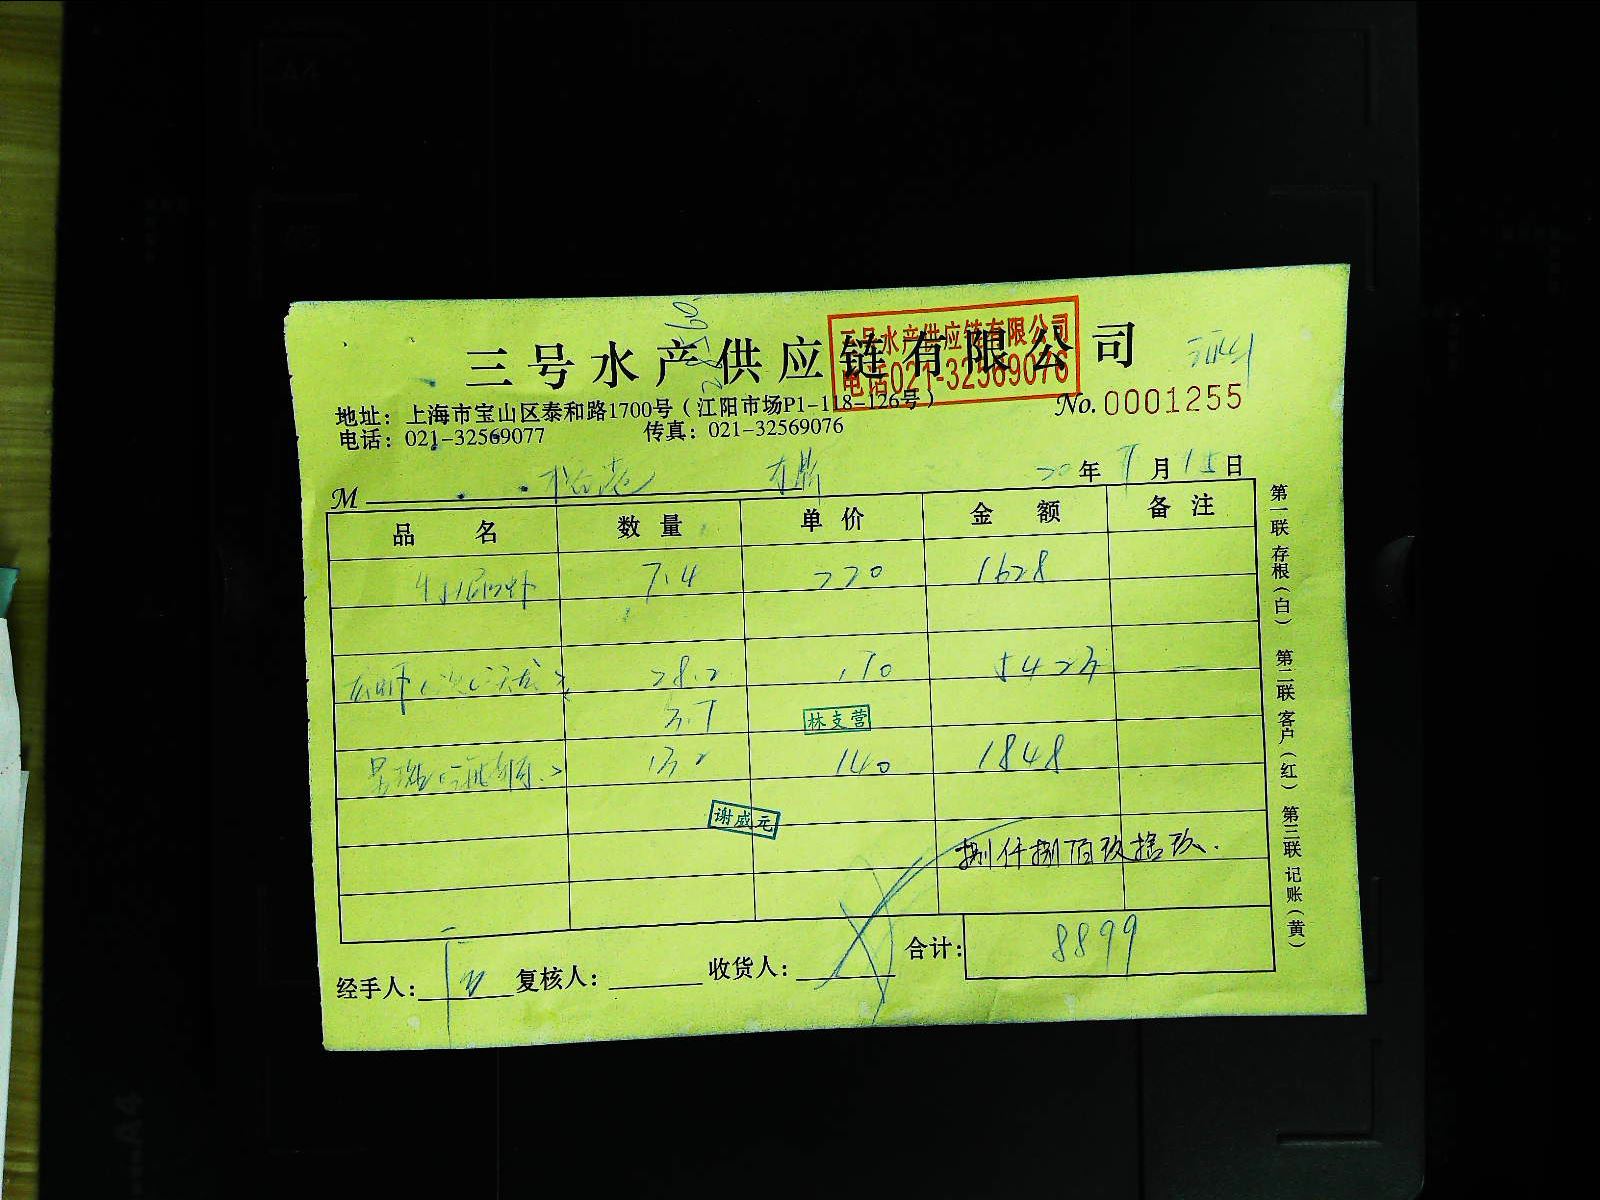 三号水产供应链有限公司
三号水产供应链有限公司
电话021-32569076
地址：上海市宝山区泰和路1700号（江阳市场P1-118-126号）
No. 0001255
电话：021-32569077 传真：021-32569076
M 20年 月15日
品名 数量 单价 金额 备注
7.4 220 1628
28.2 170 5423
3.7
林支营
13.2 140 1848
谢威元
捌仟捌佰玖拾玖.
合计： 8899
经手人： 复核人： 收货人：
第一联 存根（白） 第二联 客户（红） 第三联 记账（黄）